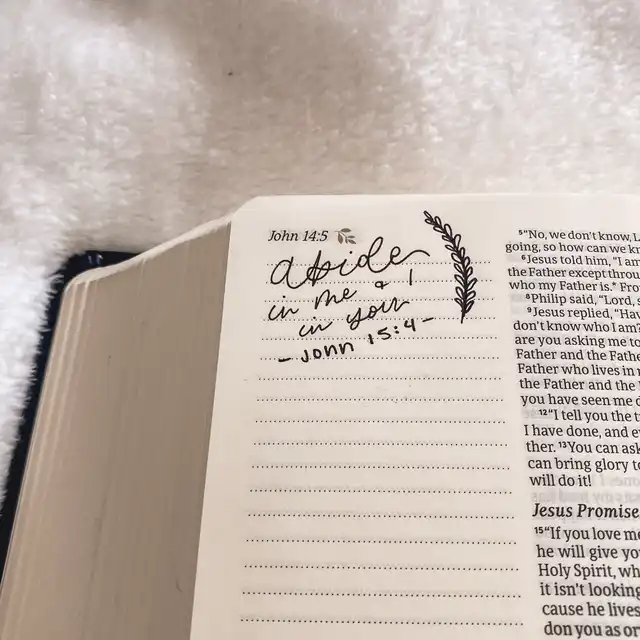 John 14:5
abide
in me & I
in you
- John 15:4 -
⁵“No, we don't know, L
going, so how can we kn
⁶Jesus told him, “I am
the Father except throu
who my Father is.* Fro
⁸Philip said, “Lord, s
⁹Jesus replied, “Hav
don't know who I am?
are you asking me to
Father and the Fathe
Father who lives in m
the Father and the
you have seen me d
¹²“I tell you the t
I have done, and ev
ther. ¹³You can ask
can bring glory to
will do it!
Jesus Promise
¹⁵“If you love me
he will give yo
Holy Spirit, wh
it isn't looking
cause he lives
don you as or